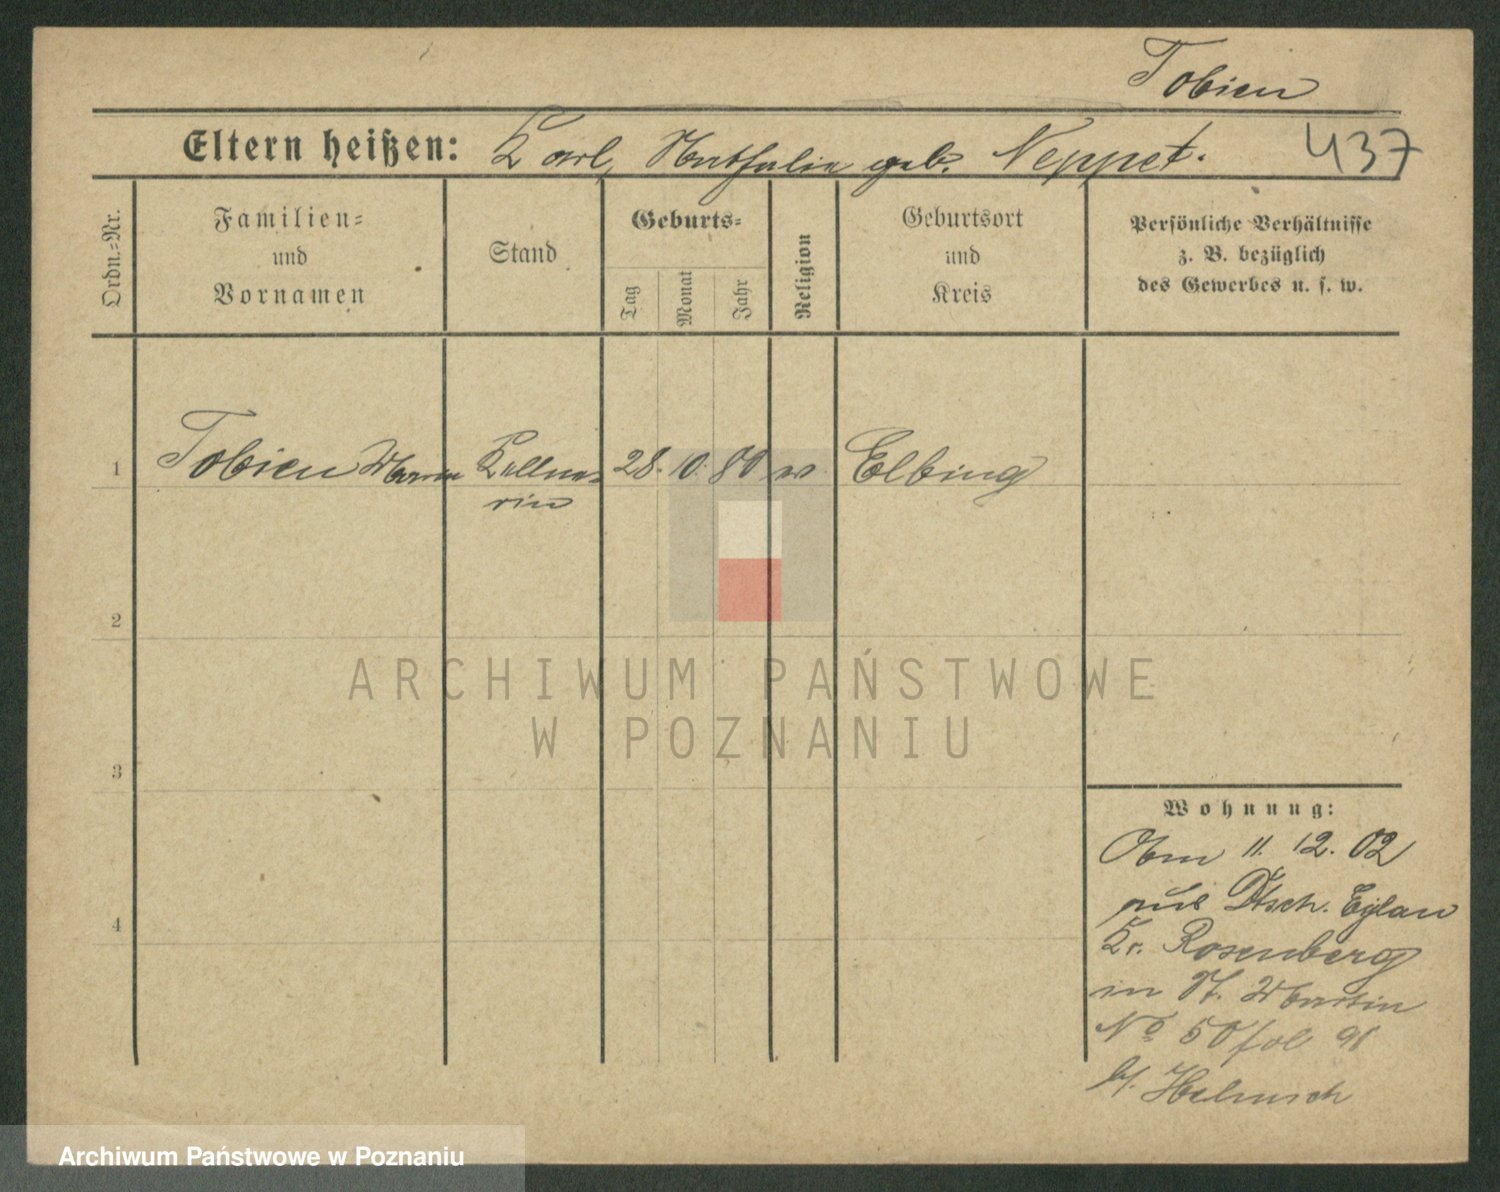 Tobien
Eltern heißen: Karl, Nathalie geb. Neppet.
437
Ordn.-Nr.
Familien- und Vornamen
Stand
Geburts-
Tag
Monat
Jahr
Religion
Geburtsort und Kreis
Persönliche Verhältnisse
z. B. bezüglich
des Gewerbes u. s. w.
1 Tobien Maria Kellne- 28. 10. 80 Elbing
rin
2
3
4
ARCHIWUM PAŃSTWOWE
W POZNANIU
Wohnung:
11. 12. 02
aus Dtsch. Eylau
Kr. Rosenberg
in St. Martin
No 50 fol 91
b/.
Archiwum Państwowe w Poznaniu